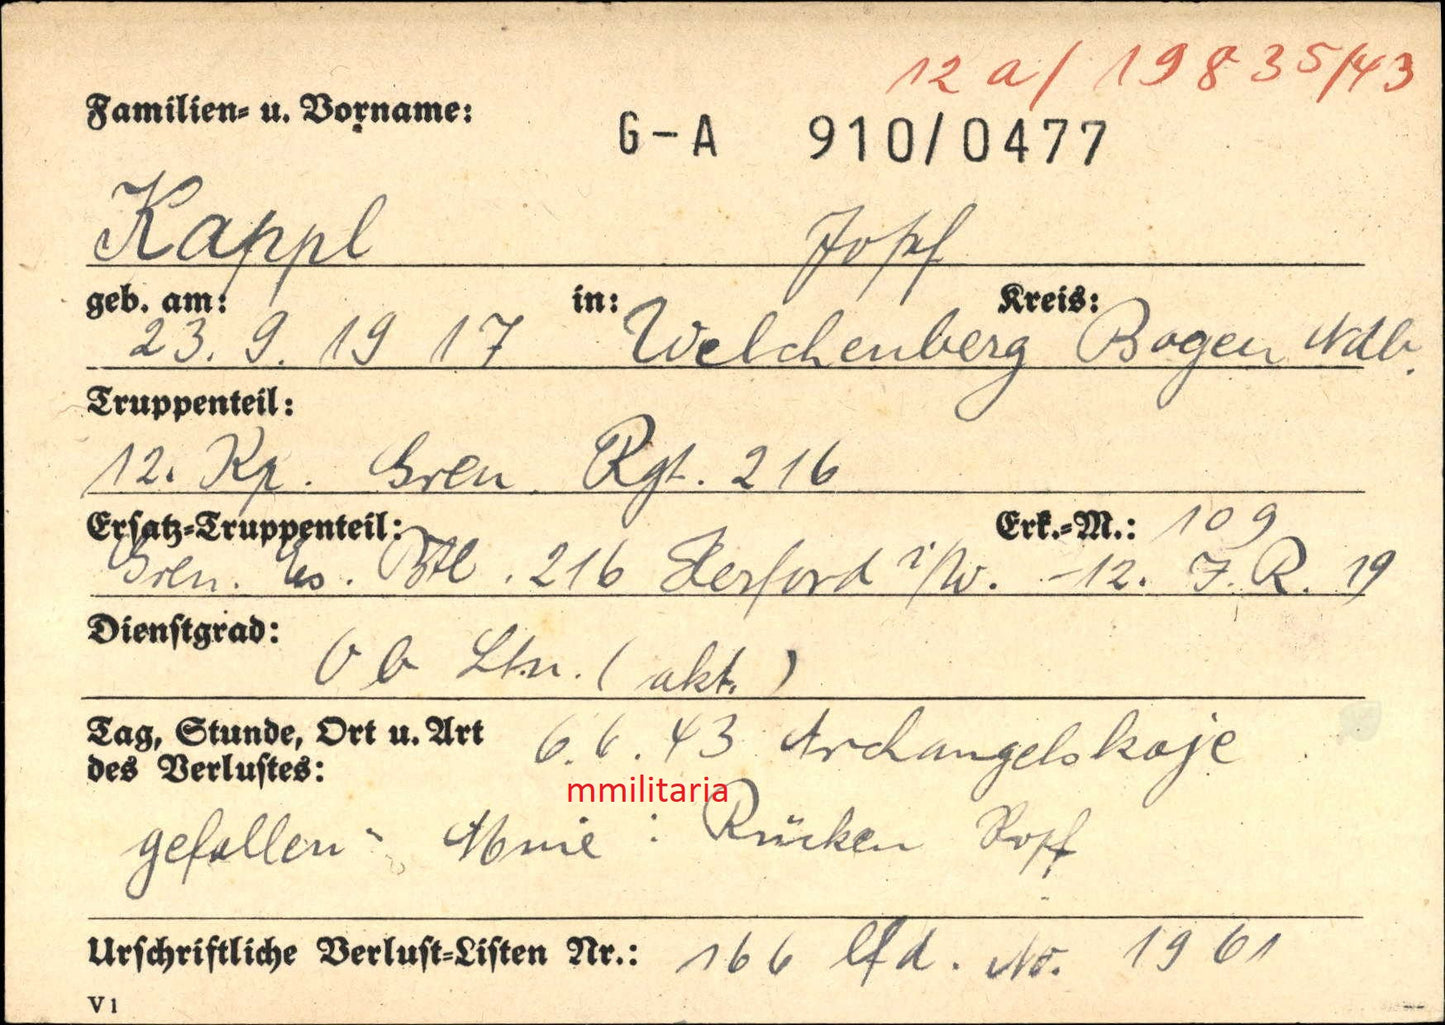 12 a/ 19835/43
Familien- u. Vorname:
G-A 910/0477
Kappl Josef
geb. am: in: Kreis:
23. 9. 19 17 Welchenberg Bogen Ndb.
Truppenteil:
12. Kp. Gren. Rgt. 216
Ersatz-Truppenteil: Erk.-M.: 109
Gren. Ers. Btl. 216 Herford i/W. -12. I. R. 19
Dienstgrad:
Ob Ltn. (akt.)
Tag, Stunde, Ort u. Art 6. 6. 43 Archangelskoje
des Verlustes:
mmilitaria
gefallen - Mine : Rücken Kopf
Urschriftliche Verlust-Listen Nr.: 166 lfd. No. 1961
V 1